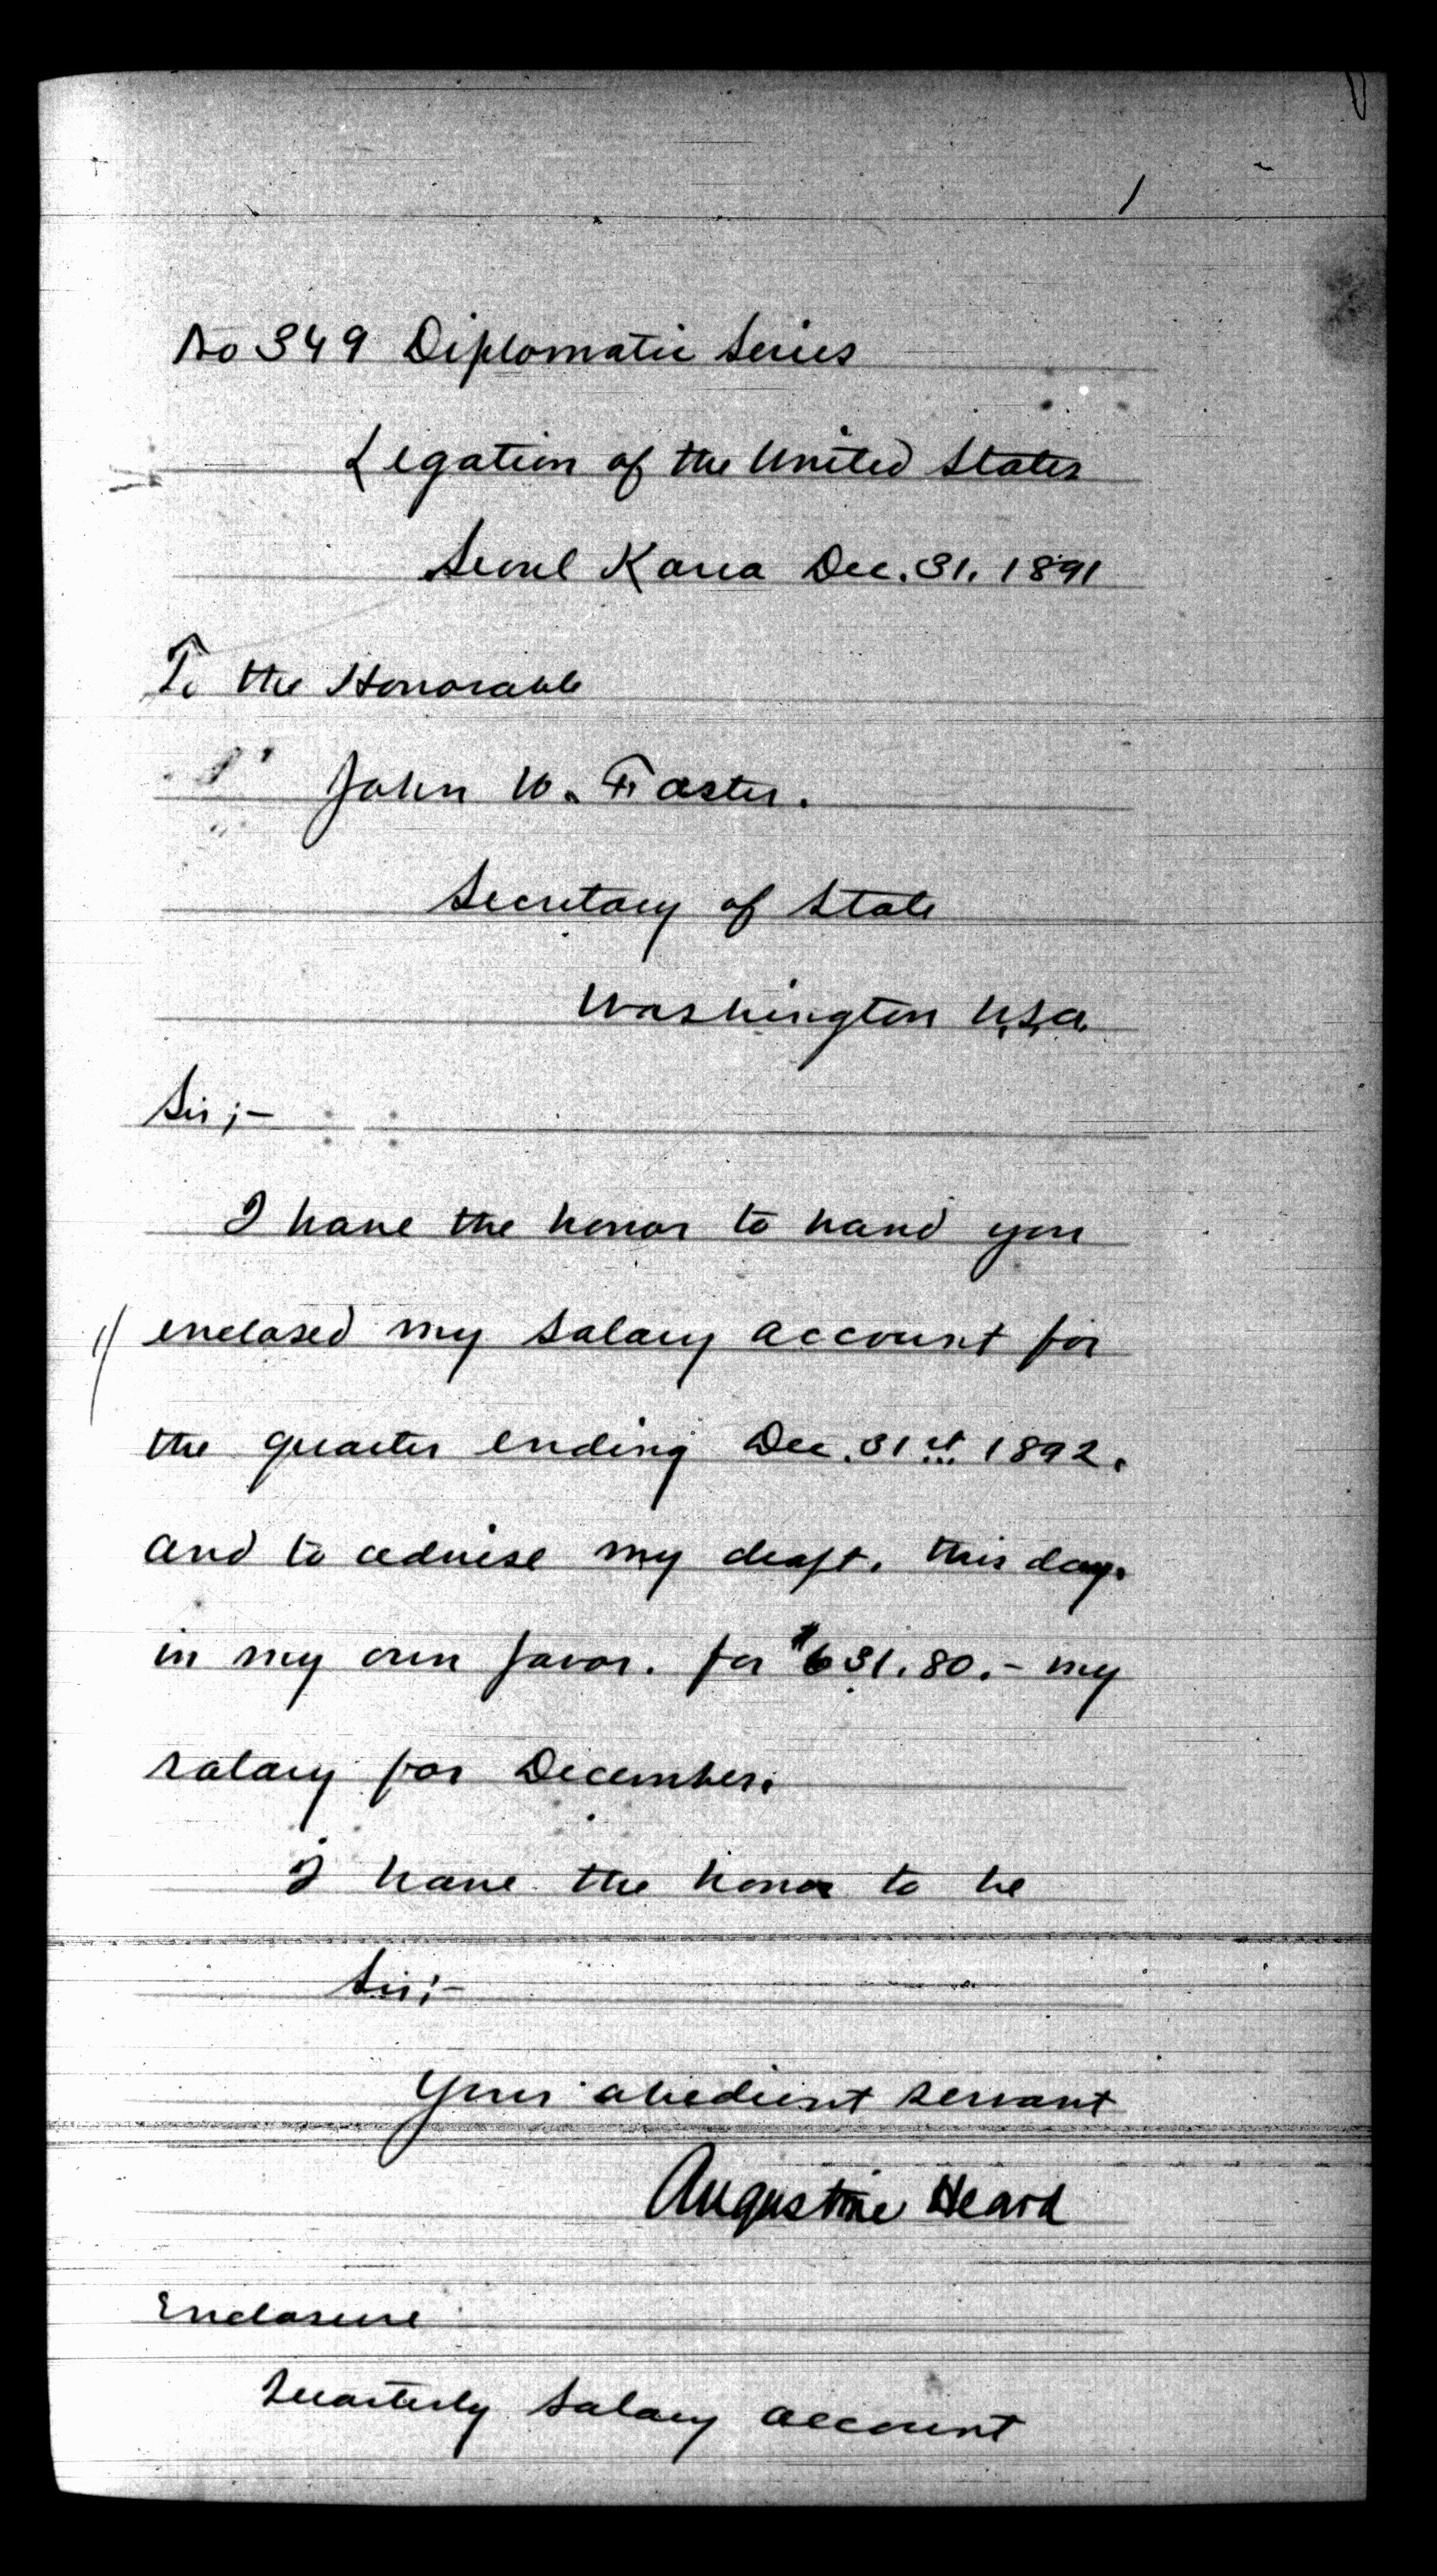 1
No 349 Diplomatic Series
Legation of the United States
Seoul Korea Dec. 31. 1891
To the Honorable
John W. Foster.
Secretary of State
Washington U.S.A.
Sir;-
I have the honor to hand you
enclosed my salary account for
the quarter ending Dec. 31st 1892.
and to advise my draft. this day.
in my own favor. for $631.80.- my
salary for December.
I have the honor to be
Sir;-
Your obedient servant
Augustine Heard
Enclosure
Quarterly salary account